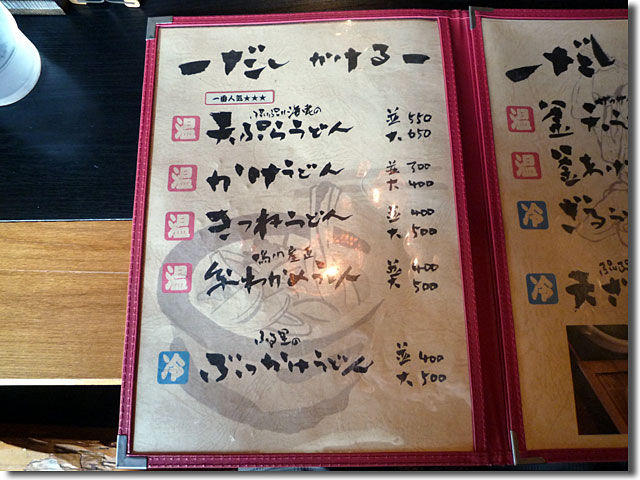 ーだし かけるー
一番人気★★★
ぷりぷり海老の
温 天ぷらうどん 並 550
大 650
温 かけうどん 並 300
大 400
温 きつねうどん 並 400
大 500
鳴門産
温 わかめうどん 並 400
大 500
冷 ぶっかけうどん 並 400
大 500
ーだし
温 釜
温 釜
冷 ざるう
冷 天ざ